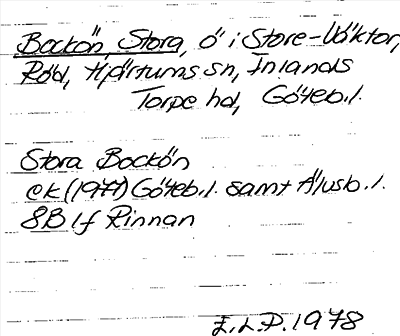 Bockön, Stora, ö i Store-Väktor,
Röd, Hjärtums sn, Inlands
Torpe hd, Göteb.l.
Stora Bockön
ek (1977) Göteb.l. samt Älvsb.l.
8B 1f Rinnan
E.L.P. 1978